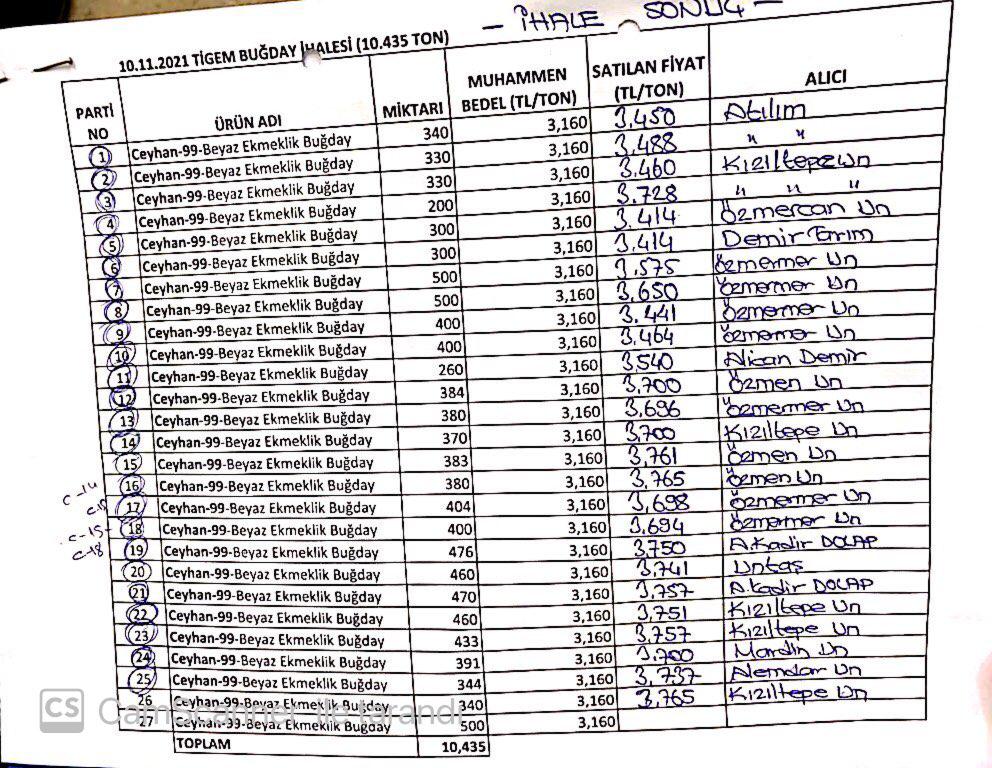 - İHALE SONUÇ -
10.11.2021 TİGEM BUĞDAY İHALESİ (10.435 TON)
PARTİ NO ÜRÜN ADI MİKTARI MUHAMMEN BEDEL (TL/TON) SATILAN FİYAT (TL/TON) ALICI
1 Ceyhan-99-Beyaz Ekmeklik Buğday 340 3,160 3.450 Atılım
2 Ceyhan-99-Beyaz Ekmeklik Buğday 330 3,160 3.488 " "
3 Ceyhan-99-Beyaz Ekmeklik Buğday 330 3,160 3.460 Kızıltepe Un
4 Ceyhan-99-Beyaz Ekmeklik Buğday 200 3,160 3.728 " " "
5 Ceyhan-99-Beyaz Ekmeklik Buğday 300 3,160 3.414 Özmercan Un
6 Ceyhan-99-Beyaz Ekmeklik Buğday 300 3,160 3.414 Demir Tarım
7 Ceyhan-99-Beyaz Ekmeklik Buğday 500 3,160 3.575 Özmermer Un
8 Ceyhan-99-Beyaz Ekmeklik Buğday 500 3,160 3.650 özmermer Un
9 Ceyhan-99-Beyaz Ekmeklik Buğday 400 3,160 3.441 özmermer Un
10 Ceyhan-99-Beyaz Ekmeklik Buğday 400 3,160 3.464 özmermer Un
11 Ceyhan-99-Beyaz Ekmeklik Buğday 260 3,160 3.540 Alican Demir
12 Ceyhan-99-Beyaz Ekmeklik Buğday 384 3,160 3.700 Özmen Un
13 Ceyhan-99-Beyaz Ekmeklik Buğday 380 3,160 3.696 özmermer Un
14 Ceyhan-99-Beyaz Ekmeklik Buğday 370 3,160 3.700 Kızıltepe Un
15 Ceyhan-99-Beyaz Ekmeklik Buğday 383 3,160 3.761 Özmen Un
C-14 16 Ceyhan-99-Beyaz Ekmeklik Buğday 380 3,160 3.765 özmen Un
17 Ceyhan-99-Beyaz Ekmeklik Buğday 404 3,160 3.698 özmermer Un
C-15- 18 Ceyhan-99-Beyaz Ekmeklik Buğday 400 3,160 3.694 özmermer Un
C-18 19 Ceyhan-99-Beyaz Ekmeklik Buğday 476 3,160 3.750 A.Kadir DOLAP
20 Ceyhan-99-Beyaz Ekmeklik Buğday 460 3,160 3.741 Untaş
21 Ceyhan-99-Beyaz Ekmeklik Buğday 470 3,160 3.757 A.Kadir DOLAP
22 Ceyhan-99-Beyaz Ekmeklik Buğday 460 3,160 3.751 Kızıltepe Un
23 Ceyhan-99-Beyaz Ekmeklik Buğday 433 3,160 3.757 Kızıltepe Un
24 Ceyhan-99-Beyaz Ekmeklik Buğday 391 3,160 3.700 Mardin Un
25 Ceyhan-99-Beyaz Ekmeklik Buğday 344 3,160 3.737 Alemdar Un
26 Ceyhan-99-Beyaz Ekmeklik Buğday 340 3,160 3.765 Kızıltepe Un
27 Ceyhan-99-Beyaz Ekmeklik Buğday 500 3,160
TOPLAM 10,435
CS CamScanner ile tarandı